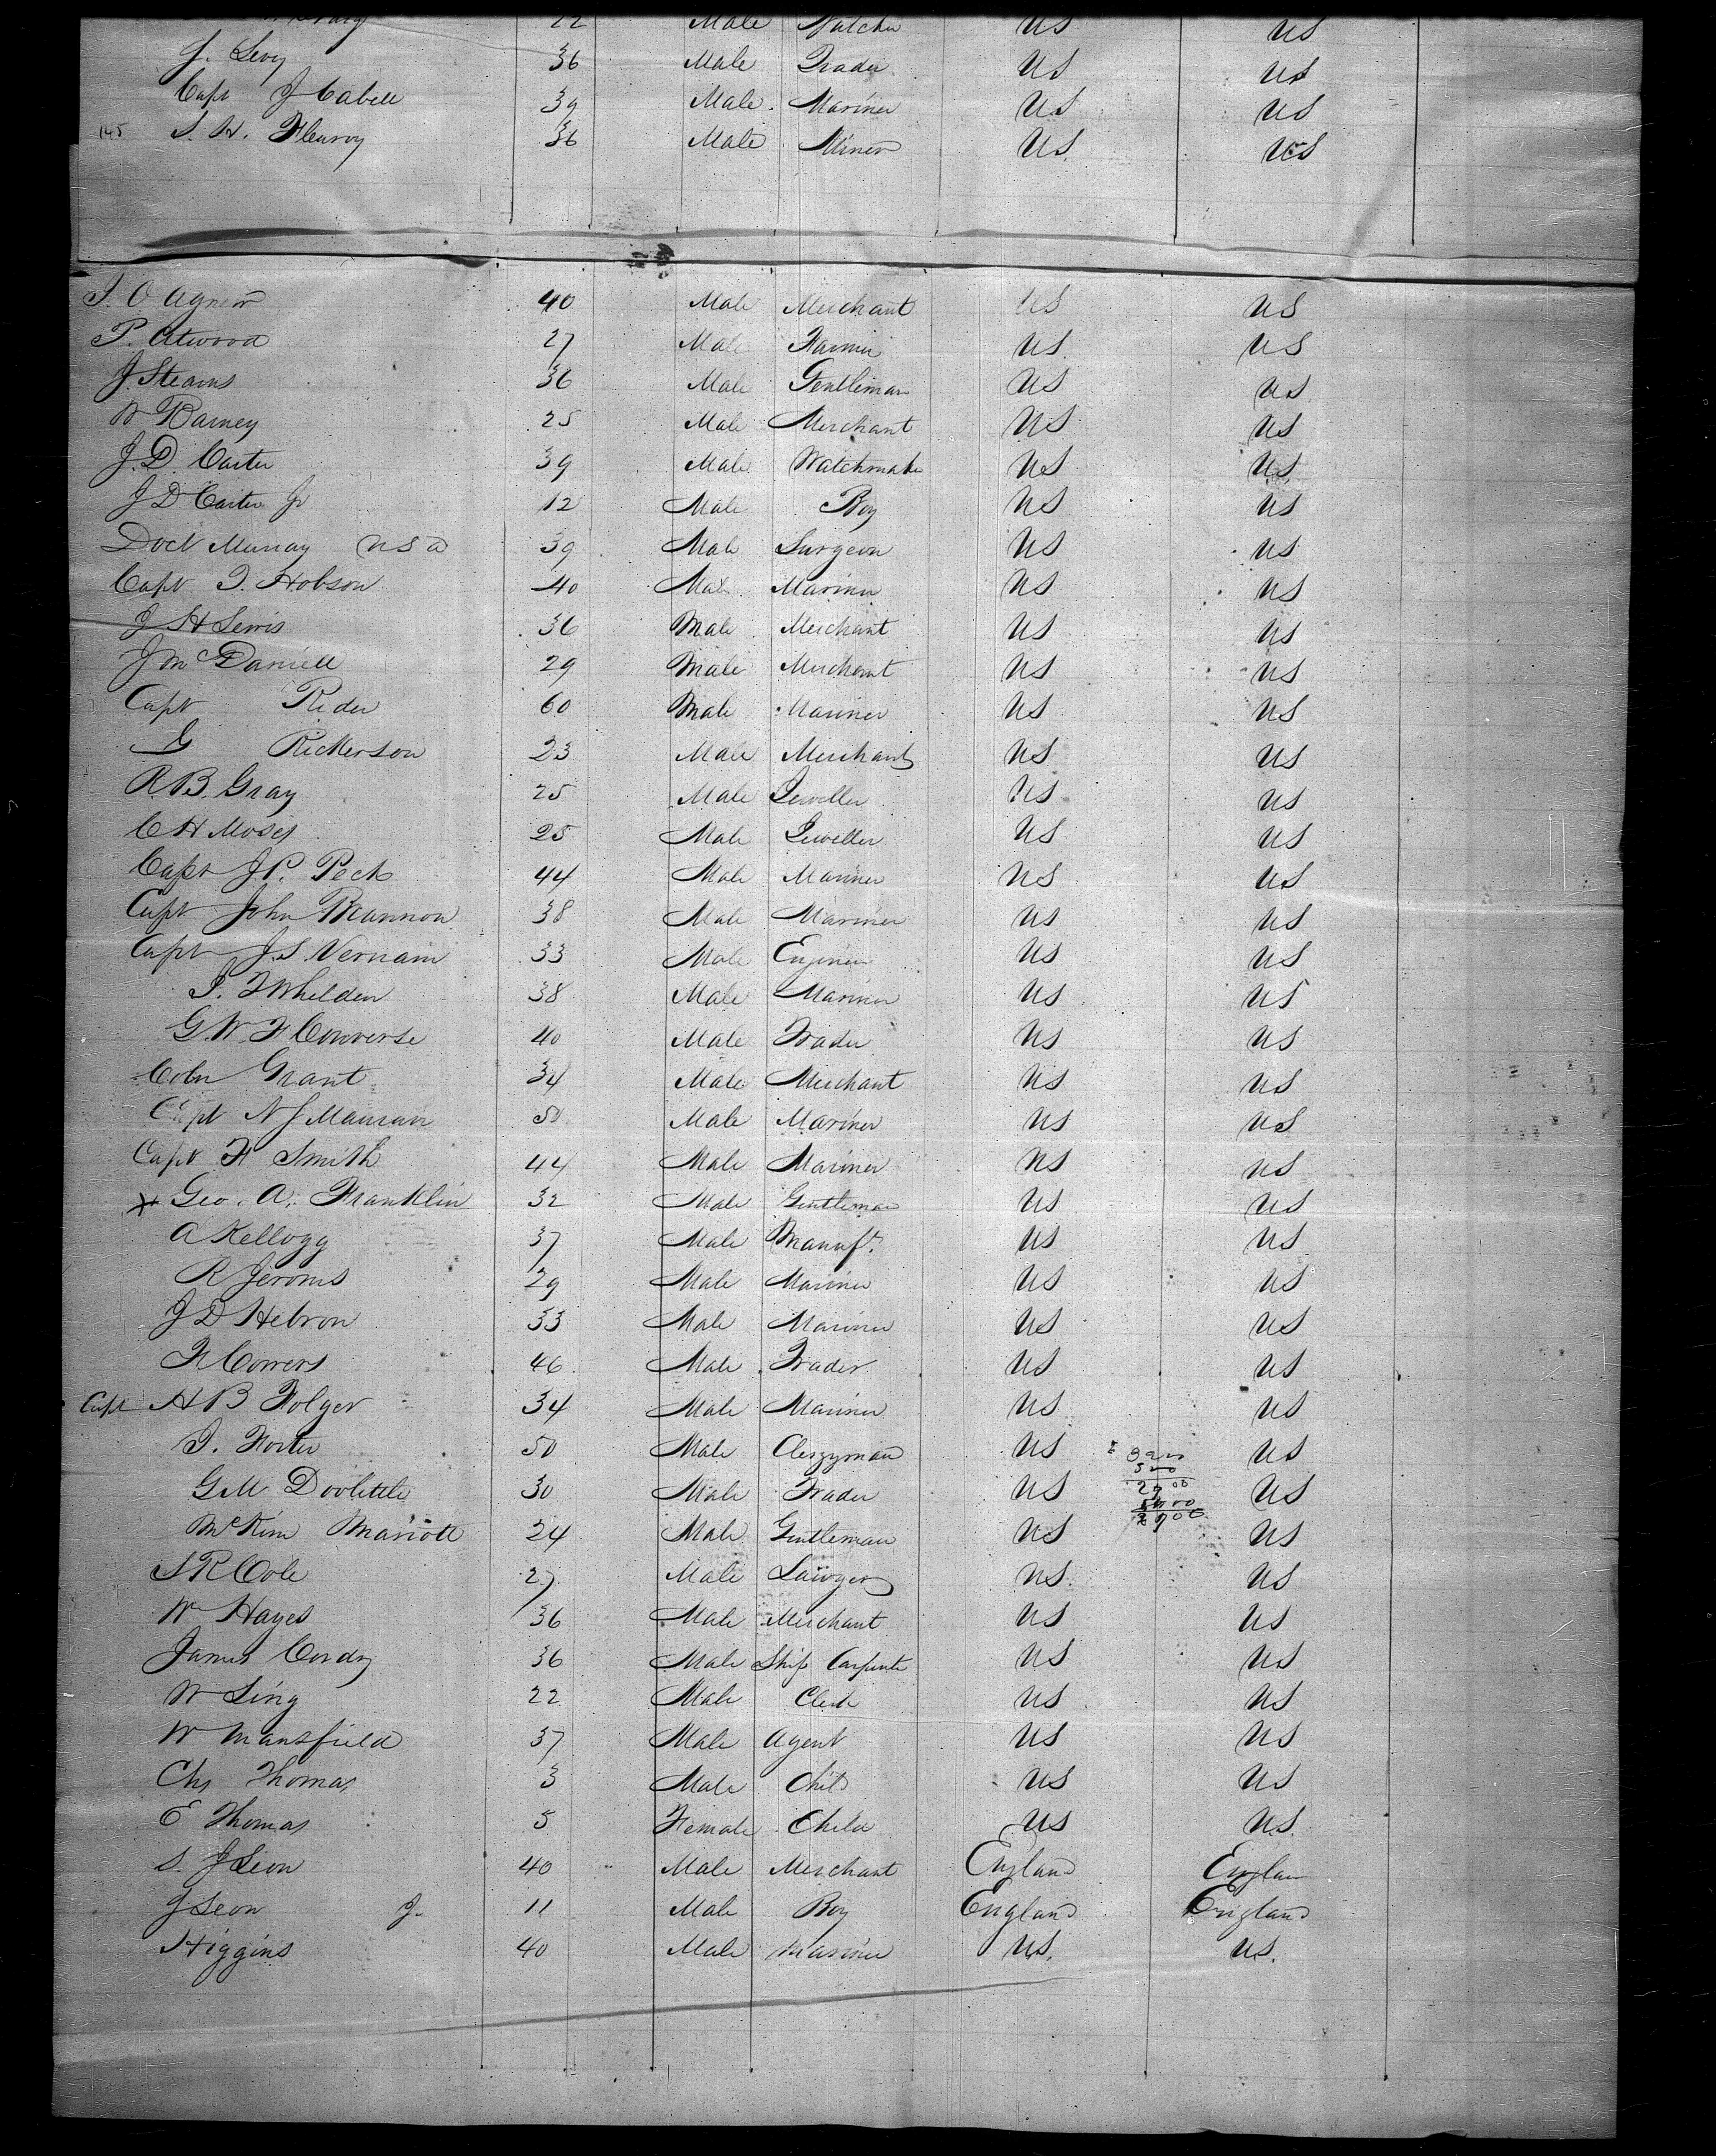 22 Male Butcher US US
J. Levy 36 Male Trader US US
Capt J Cabell 39 Male Mariner US US
145 S. H. Fleury 36 Male Miner US US
S. O Agnew 40 Male Merchant US US
P. Atwood 27 Male Farmer US US
J Stearns 36 Male Gentleman US US
W Barney 25 Male Merchant US US
J. D. Carter 39 Male Watchmaker US US
J D Carter Jr 12 Male Boy US US
Doct Murray USA 39 Male Surgeon US US
Capt T. Hobson 40 Male Mariner US US
J H Lewis 36 Male Merchant US US
J McDaniell 29 Male Merchant US US
Capt Rider 60 Male Mariner US US
G Rickerson 23 Male Merchant US US
R. B. Gray 25 Male Jeweller US US
C H Moses 25 Male Jeweller US US
Capt J P. Peck 44 Male Mariner US US
Capt John Brannon 38 Male Mariner US US
Capt J. S. Vernam 33 Male Engineer US US
J. F Whelden 38 Male Mariner US US
G. W. F Converse 40 Male Trader US US
Coln Grant 34 Male Merchant US US
Capt N J Mauran 50 Male Mariner US US
Capt H Smith 44 Male Mariner US US
x Geo. A. Franklin 32 Male Gentleman US US
A Kellogg 37 Male Manuft. US US
R Jeroms 29 Male Mariner US US
J D Hebron 33 Male Mariner US US
F Cowers 46 Male Trader US US
Capt H B Folger 34 Male Mariner US US
J. Porter 50 Male Clergyman US US
G M Doolittle 30 Male Trader US US
McKim Mariott 24 Male Gentleman US US
S R Cole 27 Male Lawyer US US
W Hayes 36 Male Merchant US US
James Cordy 36 Male Ship Carpenter US US
W Ling 22 Male Clerk US US
W Mansfield 37 Male Agent US US
Chs Thomas 3 Male Child US US
E Thomas 5 Female Child US US
S. J Leon 40 Male Merchant England England
J Leon J. 11 Male Boy England England
Higgins 40 Male Mariner US. US.